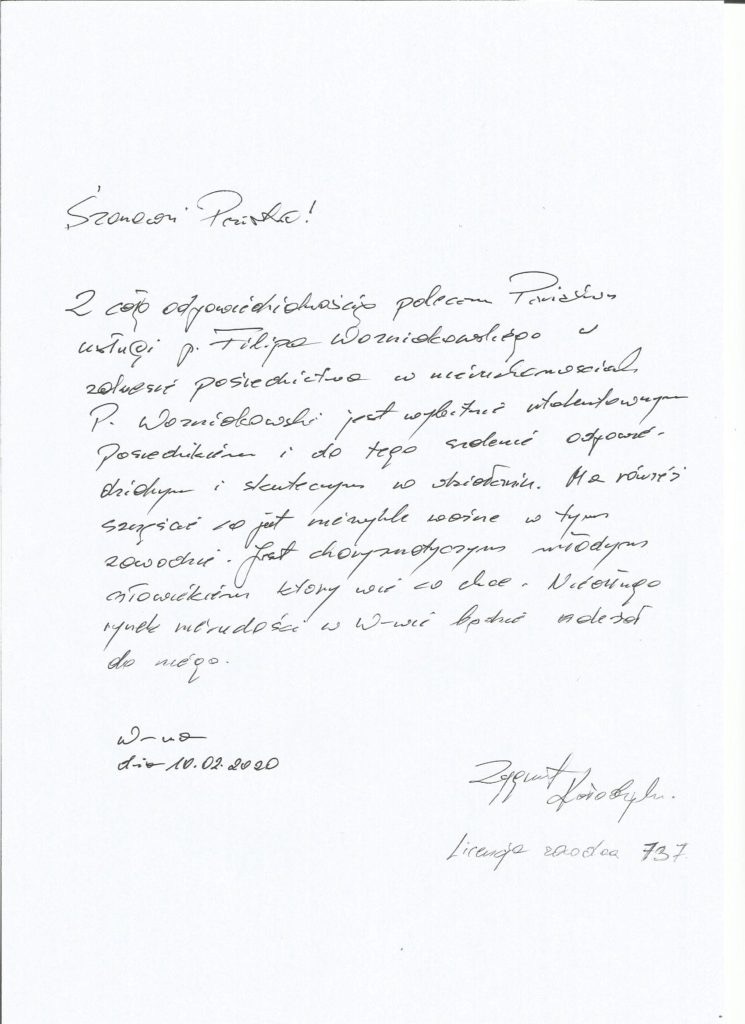 Szanowni Państwo!
Z całą odpowiedzialnością polecam Państwu
usługi p. Filipa Wozniakowskiego w
zakresie pośrednictwa w nieruchomościach
P. Wozniakowski jest wybitnie utalentowanym
Pośrednikiem i do tego szalenie odpowie-
dzialnym i skutecznym w działaniu. Ma również
szczęście co jest niezwykle ważne w tym
zawodzie. Jest charyzmatycznym młodym
człowiekiem który wie co chce. Niedługo
rynek nieruchomości w W-wie będzie należał
do niego.
W-wa
dnia 10.02.2020
Zygmunt
Licencja zawodowa 737